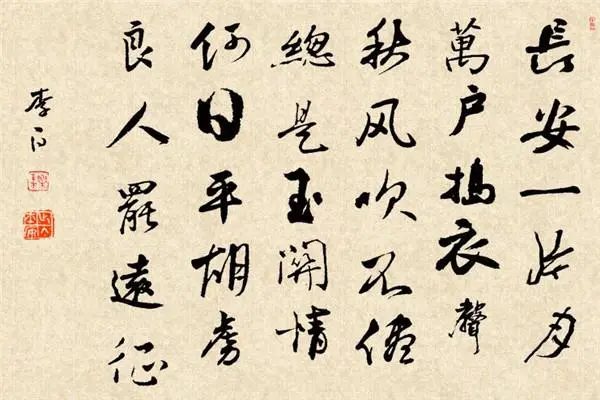 長安一片月
萬户搗衣聲
秋风吹不儘
總是玉關情
何日平胡虜
良人罷遠征
李白